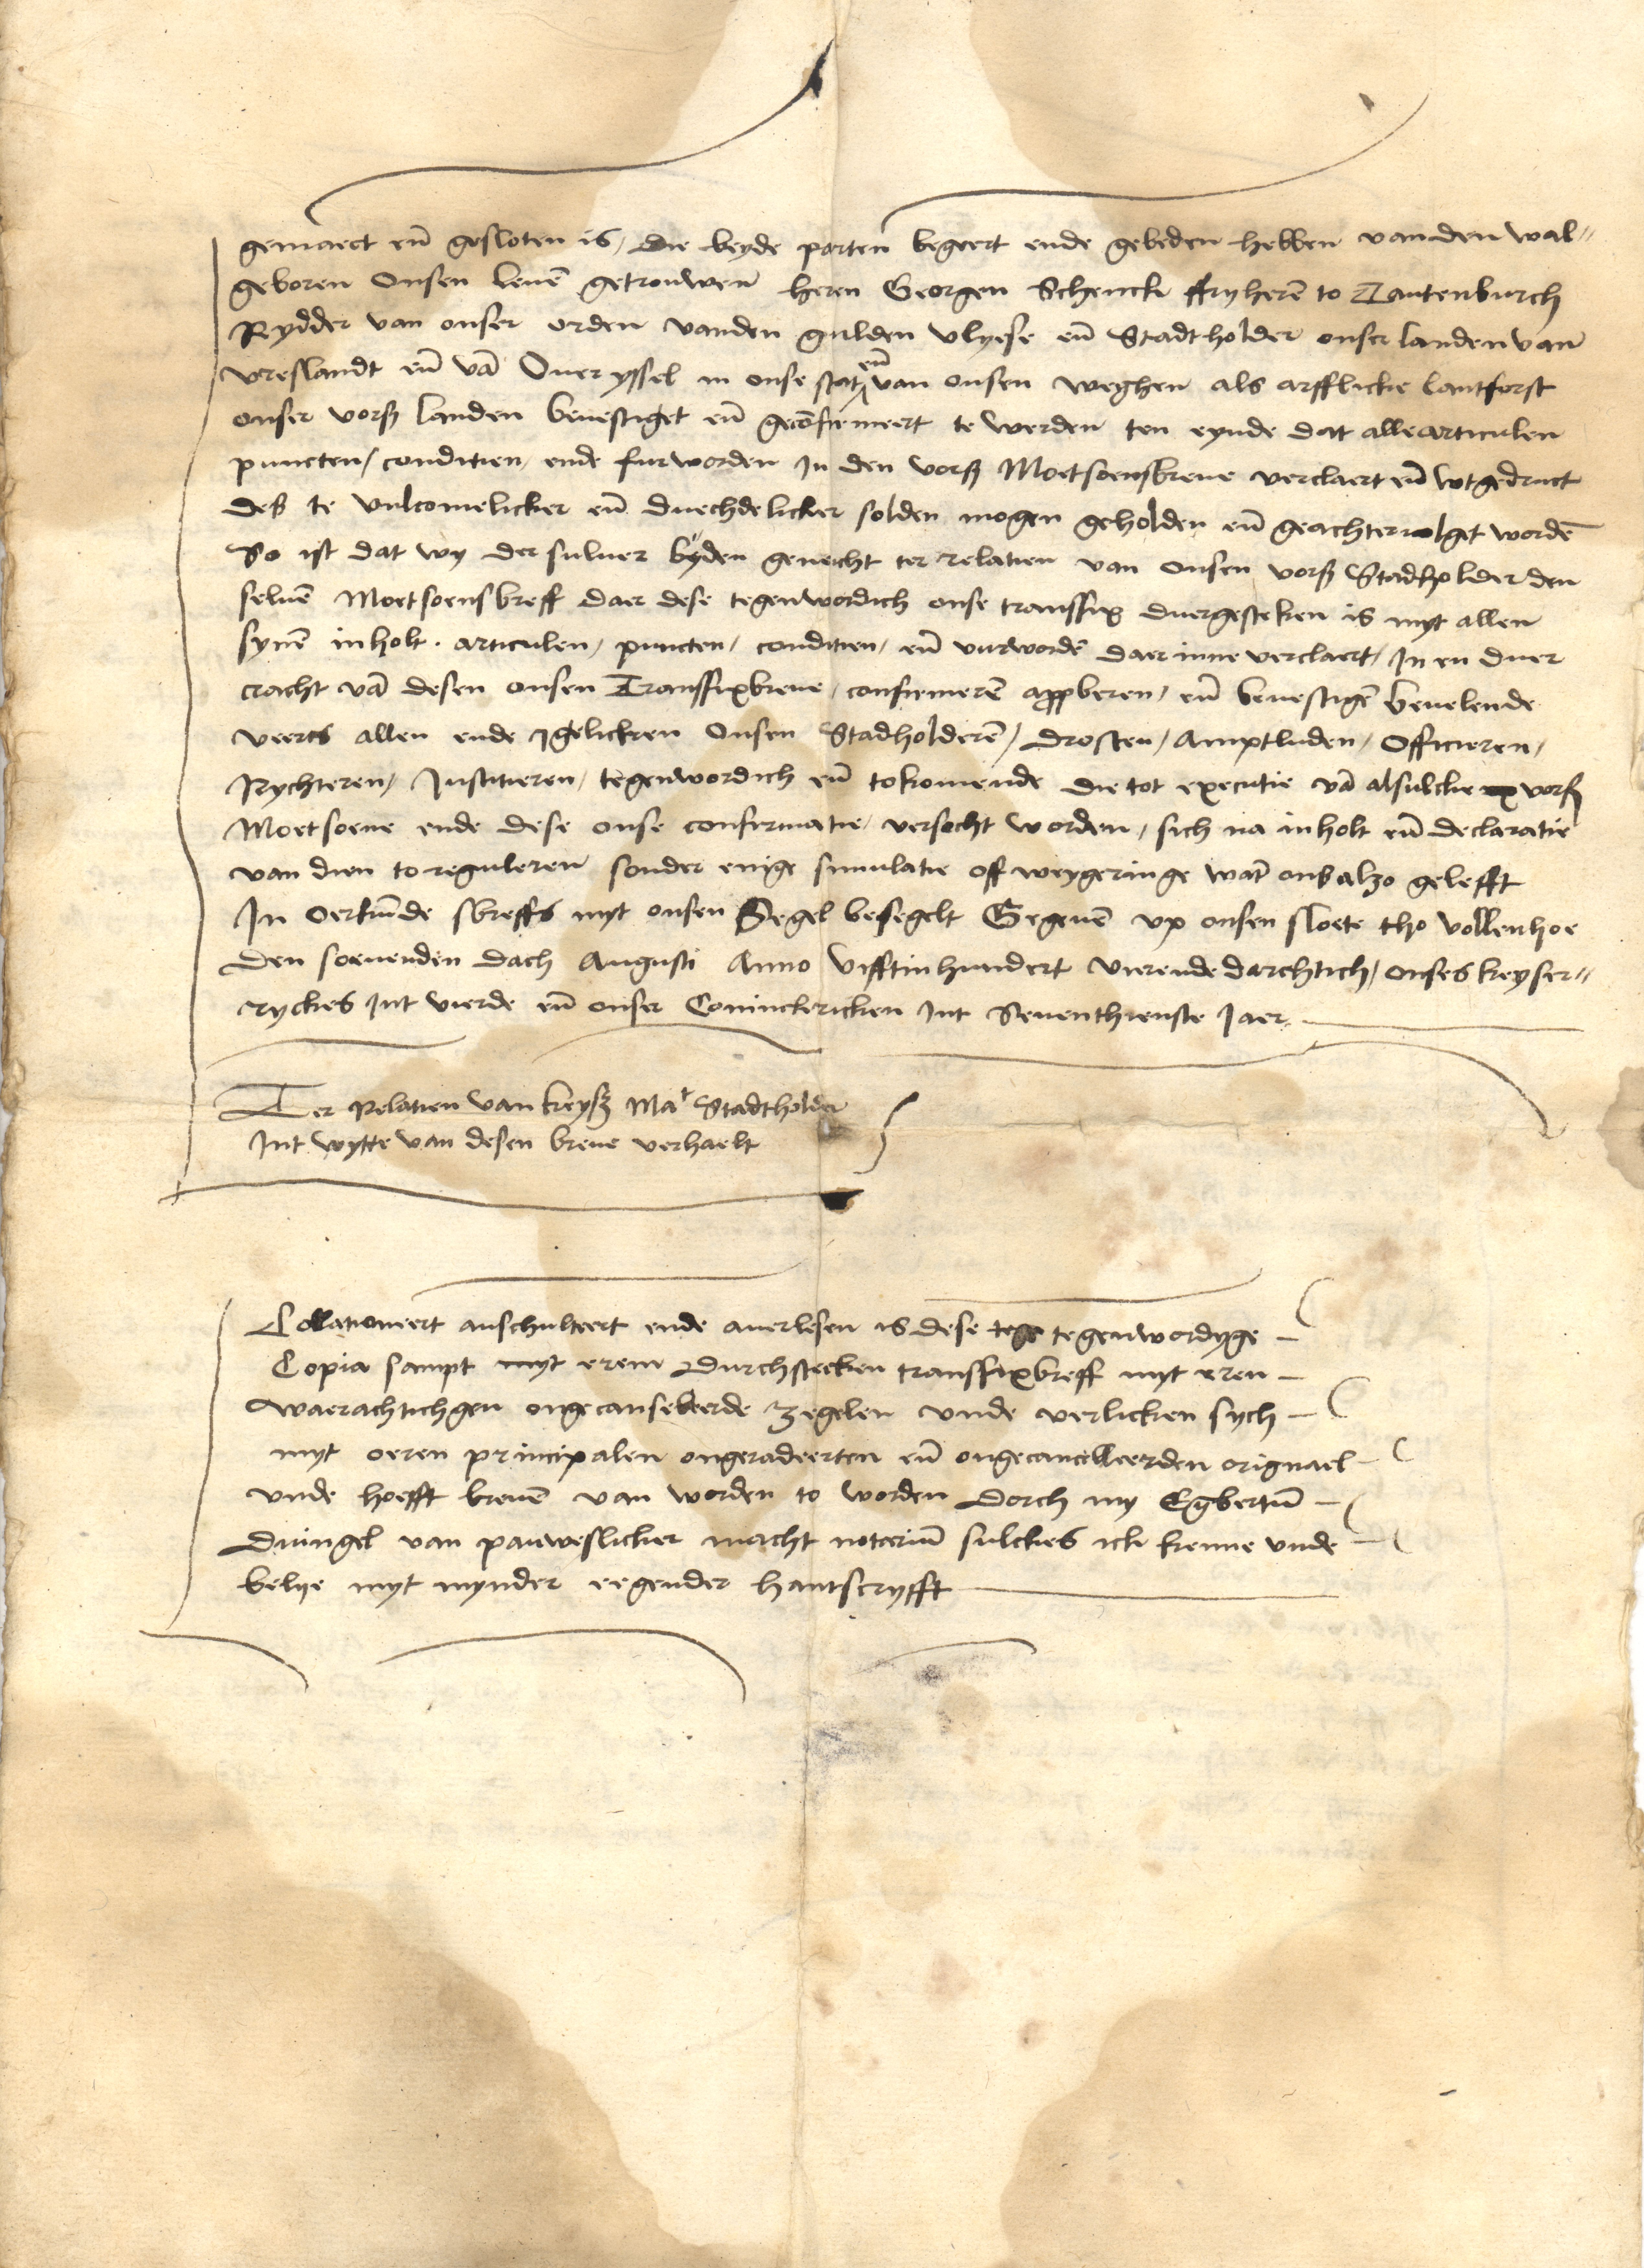 gemaect eñ gesloten is, die beyde parten begeert ende gebeden hebben van den wal-
geboren Onsen leuē getrouwen heren Georgen Schenck ffryherē to Tautenburch
Rydder van onser orden vanden gulden vlyese eñ Stadtholder onser landen van
vreslandt eñ vā Oueryssel in onse stat eñ van onsen weghen als arfflicke lantforst
onser vorß landen beuestiget eñ gecōfirmeert te werden ten eynde dat alle articulen
puncten / conditien / ende furworden In den vorß Moetsoensbreue verclaert eñ wtgedruct
des te vulcomelicker eñ duechdelicker solden mogen geholden eñ geachteruolget wordē
So ist dat wy der suluer byden geneicht ter relatien van onsen vorß Stadholder den
seluē Moetsoensbreff daer dese tegenwordich onse transfix duergesteken is myt allen
synē inholt . articulen / puncten / conditien / eñ vurwordē daer inne verclaert / In en duer
cracht vā desen onsen Transfixbreue / confirmerē approberen / eñ beuestigē beuelende
veerts allen ende Igelicken Onsen Stadholderē / Drosten / Amptluden / Officieren /
Rychteren / Justitieren / tegenwordich eñ tokomende die tot executie vā alsulcke vorß
Moetsoene ende dese onse confirmatie / versocht worden / sich na inholt eñ declaratie
van dien to reguleren sonder enige simulatie off weygeringe wāt ons alzo gelefft
In Oerkunde sbreffs myt onsen Segel besegelt Gegeuē vp onsen sloete tho vollenhoe
den soeuenden dach Augusti Anno vifftinhundert vierendedarchtich / onses keyser-
ryckes Int vierde eñ onser Coninckricken Int Seuenthienste Iaer
Ter Relatien van keyß Mat Stadtholder
Int wytte van desen breue verhaelt
Collationeert auschulteert ende auerlesen is dese tege tegenwordyge
Copia sampt myt erem durchstecken transfixbreff myt eren
waerachtichgen ongecanseleerde zegelen vnde verlicken sych
myt oeren principalen ongeradeerten eñ ongecancelleerden orignael
vnde hoefft breuē van worden to worden dorch my Egbertū
Duingel van pauweslicker macht notariū sulckes ick kenne vnde
belye myt mynder eegender hantscryfft